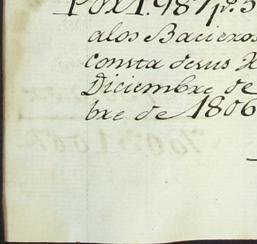 Por 1.987 p.s
alos Bacieros
consta desus
Diciembre de
bre de 1806